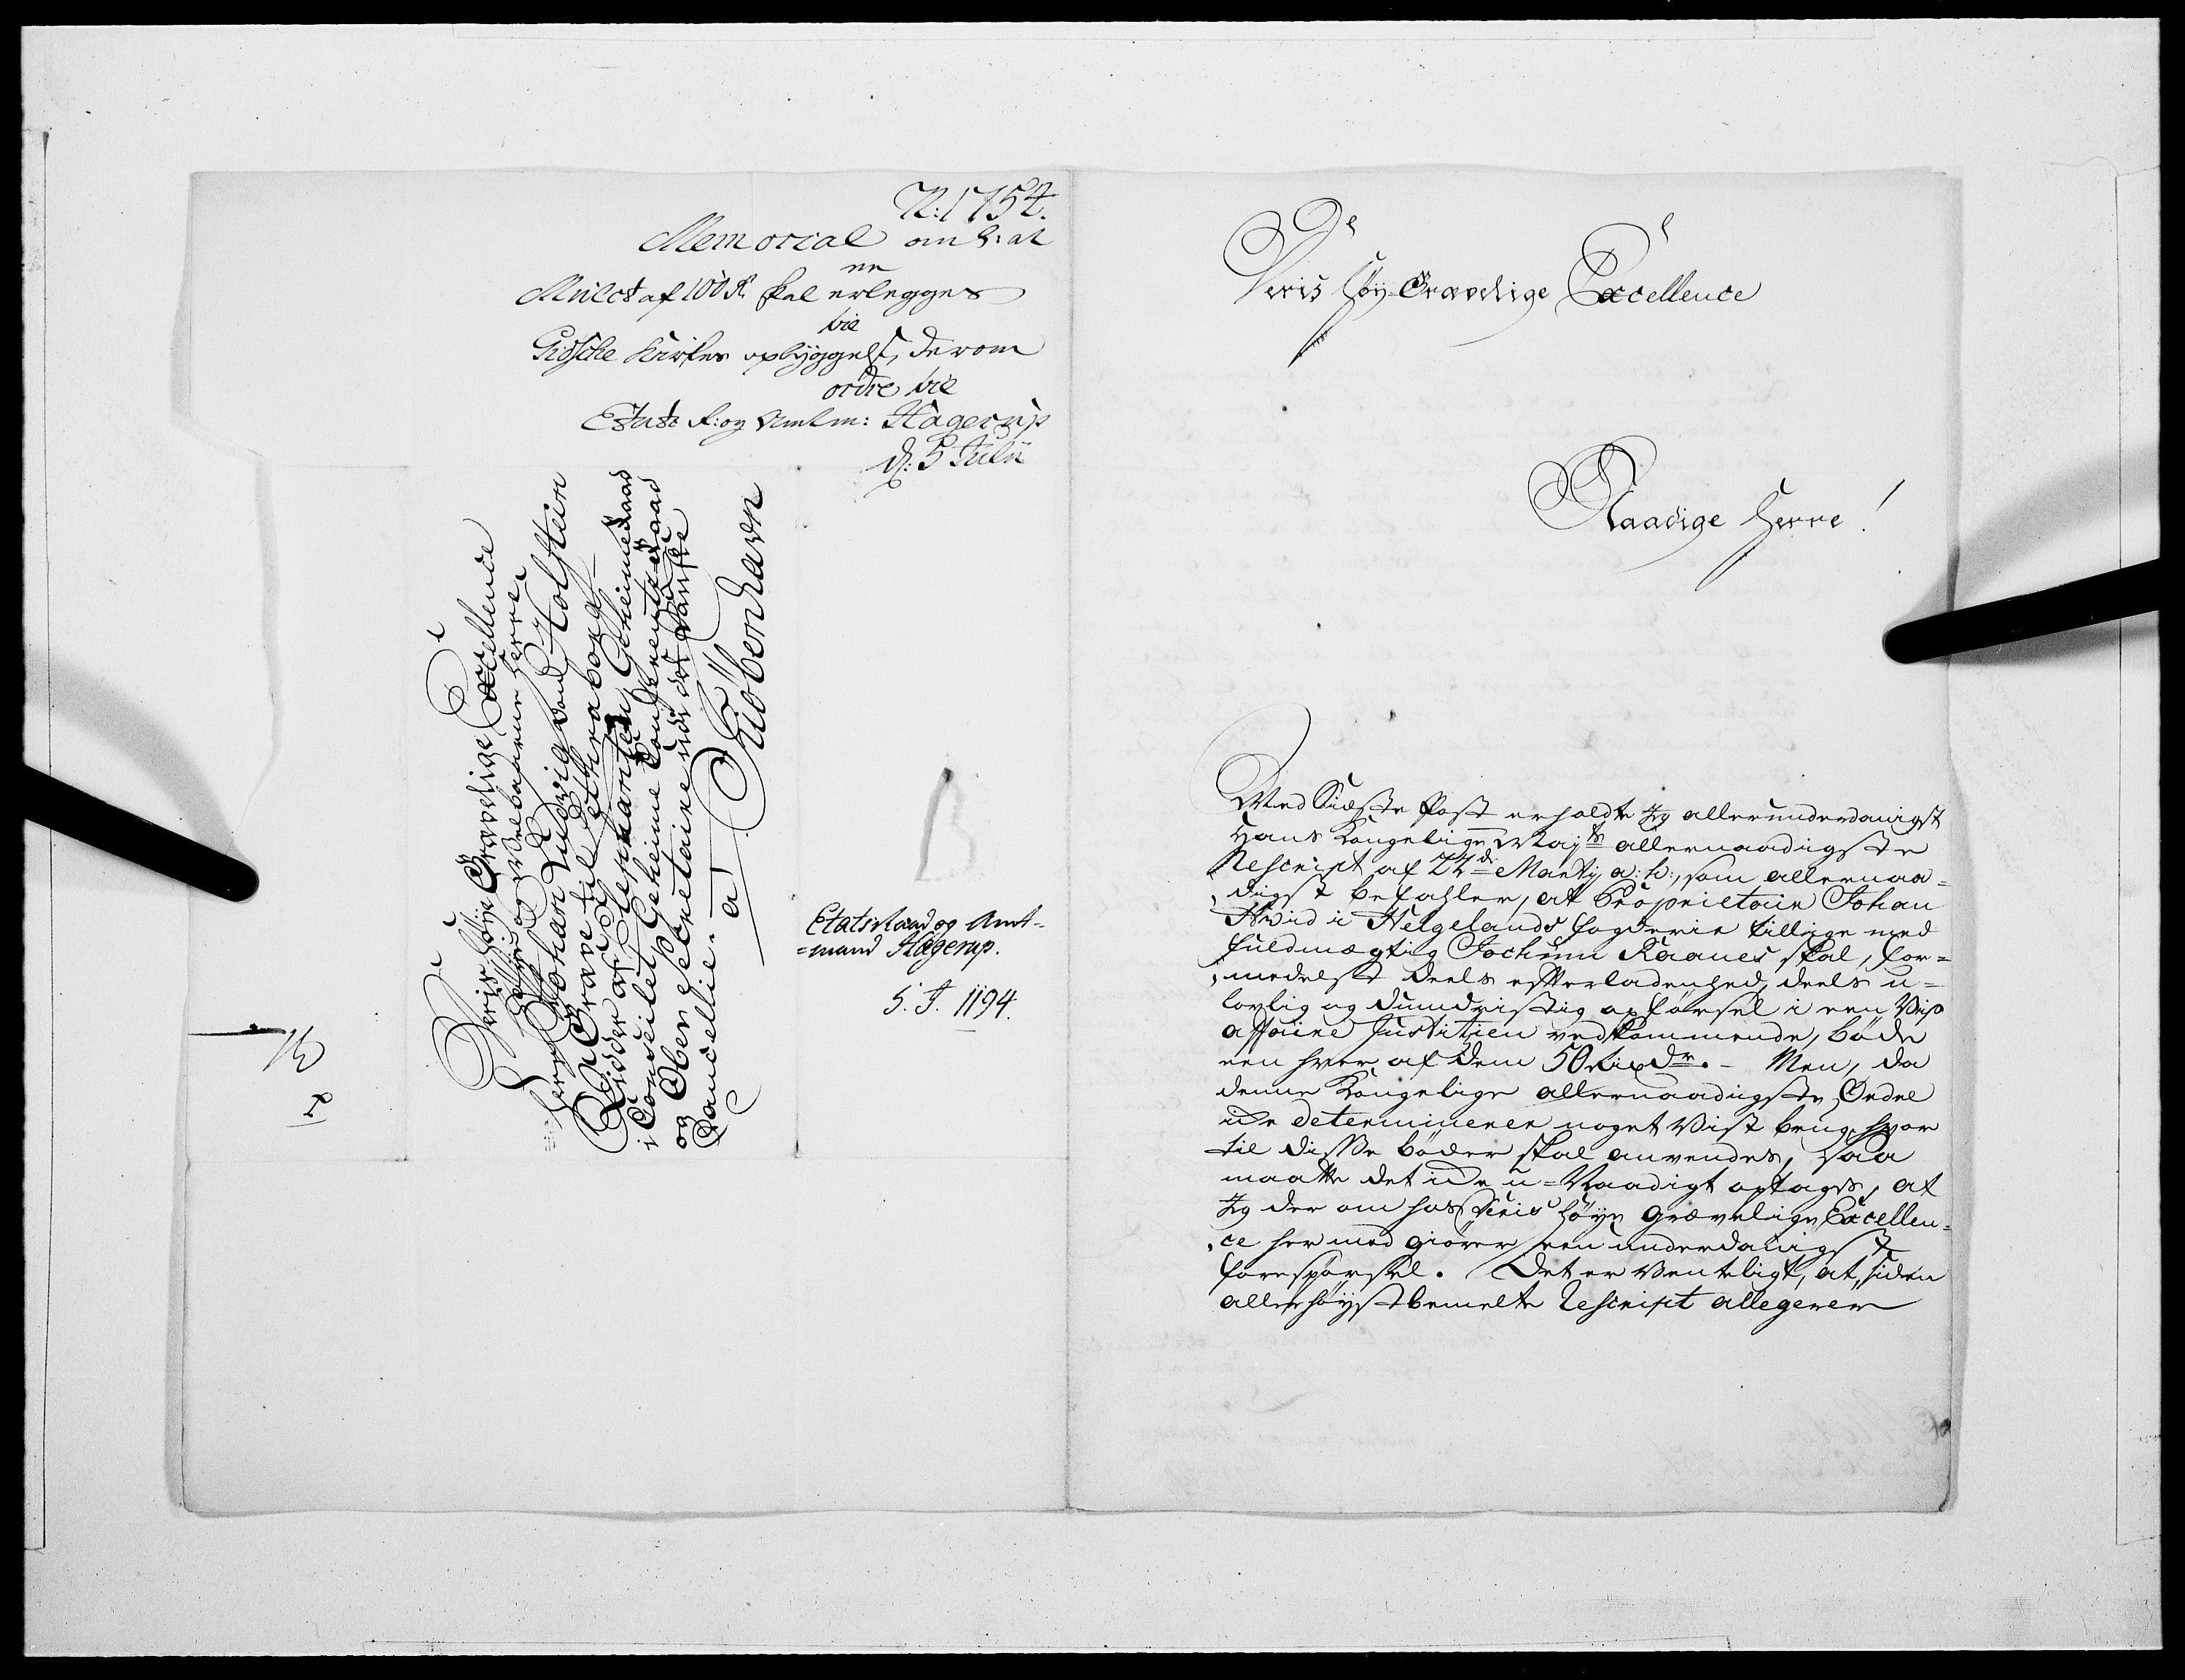 N: 1752.
Memorial om h: at
en
Mulct af 100 Rd. skal erlegges
til
Gidsche Kirkes opbyggelse, derom
ordre til
Etats R: og Amtm: Hagerup
d: 5 Julii
Deris Høÿe Grævelige Excellence
Høÿ og Velbaarne Herre
Herr Johan Ludvig von Holstein
Greve til Lethraborg
Ridder af Elephanten, Geheimeraad
i Conseilet, Geheime Conferentz-Raad
og Ober Secretaire udi det Danske
Cancellie. a Kiöbenhavn
B
Etatsraad og Amt-
=mand Hagerup.
S. T. 1194.
Deris Høÿ-Grævelige Excellence
Naadige Herre!
Med Sidste Post erholdte Jeg allerunderdanigst
Hans Kongelige Majts allernaadigste
Rescript af 22de Martÿ a: h:, som allernaa=
digst befahler, at Proprietair Johan
Hvid i Helgelands fogderie tillige med
fuldmægtig Jochum Raanes skal, for=
medelst deels efterladenhed, deels u=
lovlig og dumdristig opførsel i een Viß
affaire Justitien vedkommende, bøde
een hver af dem 50 Rixdr. – Men, da
denne Kongelige allernaadigste Ordre
iche determinerer noget Vist brug, hvor
til disse bøder skal anvendes, saa
maatte det iche u=Naadigt optages, at
Jeg der om hos Deris høÿe Grævelige Excellen=
ce her med giører een underdanigst
forespørsel. Det er Venteligt, at, siden
allerhøÿstbemelte Rescript allegerer